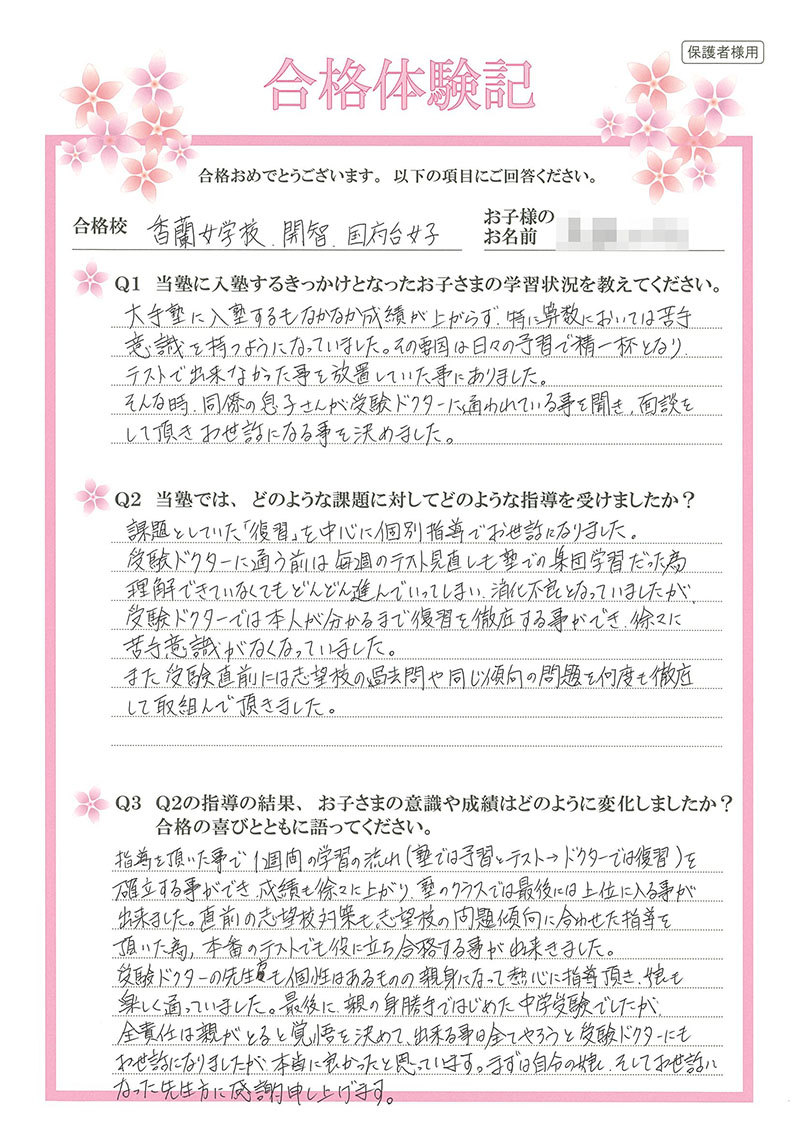 保護者様用
合格体験記
合格おめでとうございます。以下の項目にご回答ください。
合格校 香蘭女学校、開智、国府台女子
お子様の
お名前
Q1 当塾に入塾するきっかけとなったお子さまの学習状況を教えてください。
大手塾に入塾するもなかなか成績が上がらず、特に算数においては苦手
意識を持つようになっていました。その要因は日々の予習で精一杯となり、
テストで出来なかった事を放置していた事にありました。
そんな時、同僚の息子さんが受験ドクターに通われている事を聞き、面談を
して頂きお世話になる事を決めました。
Q2 当塾では、どのような課題に対してどのような指導を受けましたか？
課題としていた「復習」を中心に個別指導でお世話になりました。
受験ドクターに通う前は毎週のテスト見直しも塾での集団学習だった為
理解できていなくてもどんどん進んでいってしまい、消化不良となっていましたが、
受験ドクターでは本人が分かるまで復習を徹底する事ができ、徐々に
苦手意識がなくなっていました。
また、受験直前には志望校の過去問や同じ傾向の問題を何度も徹底
して取組んで頂きました。
Q3 Q2の指導の結果、お子さまの意識や成績はどのように変化しましたか？
合格の喜びとともに語ってください。
指導を頂いた事で1週間の学習の流れ(塾では予習とテスト→ドクターでは復習)を
確立する事ができ、成績も徐々に上がり、塾のクラスでは最後には上位に入る事が
出来ました。直前の志望校対策も、志望校の問題傾向に合わせた指導を
頂いた為、本番のテストでも役に立ち合格する事が出来きました。
受験ドクターの先生も個性はあるものの親身になって熱心に指導頂き、娘も
楽しく通っていました。最後に、親の身勝手ではじめた中学受験でしたが、
全責任は親がとると覚悟を決めて、出来る事は全てやろうと受験ドクターにも
お世話になりましたが、本当に良かったと思っています。まずは自分の娘、そしてお世話に
なった先生方に感謝申し上げます。